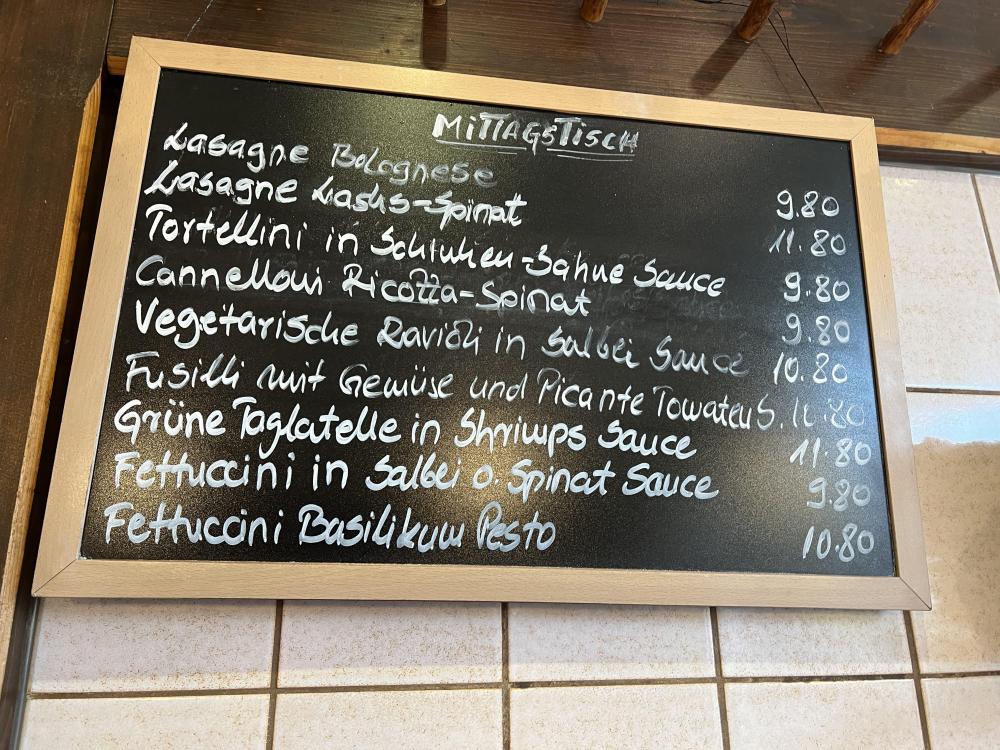 MITTAGSTISCH
Lasagne Bolognese 9.80
Lasagne Lachs-Spinat 11.80
Tortellini in Schinken-Sahne Sauce 9.80
Cannelloni Ricotta-Spinat 9.80
Vegetarische Ravioli in Salbei Sauce 10.80
Fusilli mit Gemüse und Picante Tomaten S. 10.80
Grüne Taglatelle in Shrimps Sauce 11.80
Fettuccini in Salbei o. Spinat Sauce 9.80
Fettuccini Basilikum Pesto 10.80